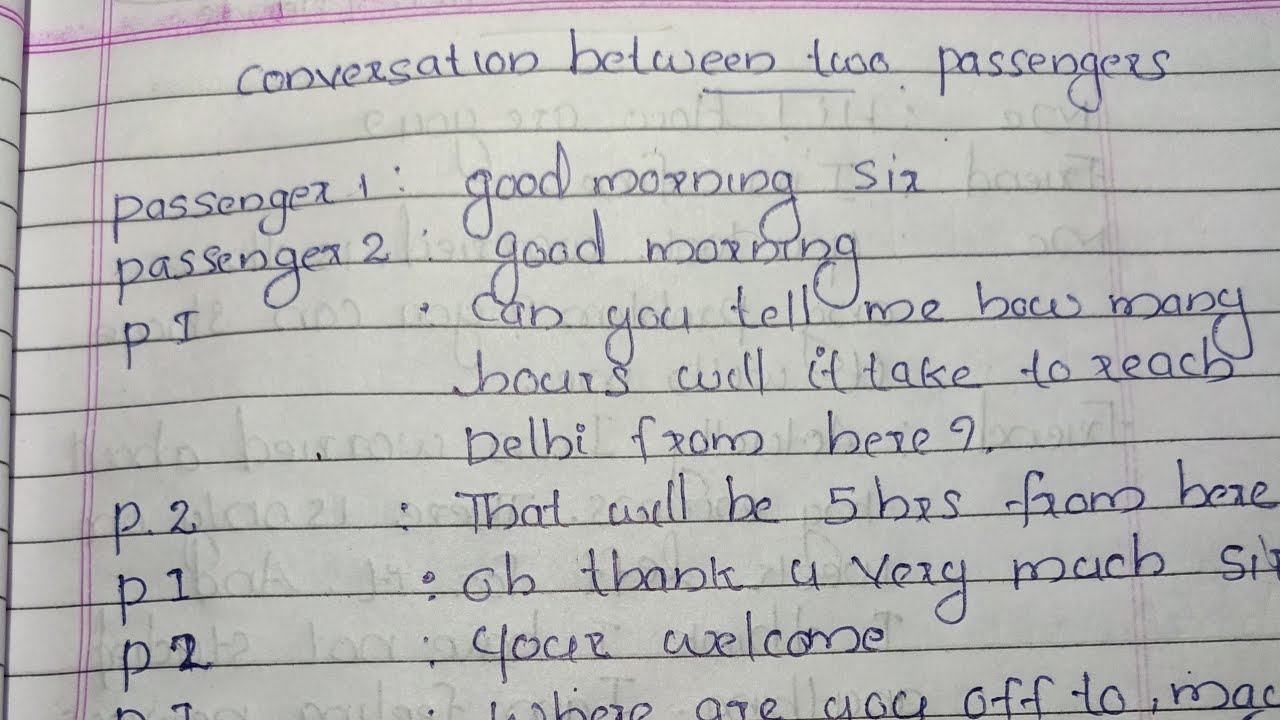 conversation between two passengers
passenger 1 : good morning sir
passenger 2 : good morning
p I : Can you tell me how many
hours will it take to reach
Delhi from here?
p.2 : That will be 5 hrs from here
p I : Oh thank u very much sir
p 2 : Your welcome
p I : Where are you off to,